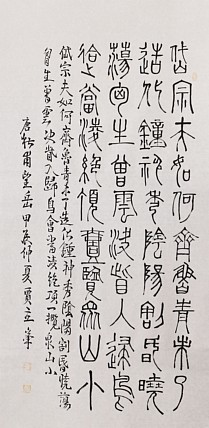 岱宗夫如何齊魯青未了
造化鍾神秀陰陽割昏曉
蕩胸生曾雲決眥入歸鳥
會當凌絕頂壹覽眾山小
岱宗夫如何齊魯青未了造化鍾神秀陰陽割昏曉蕩
胸生曾雲決眥入歸鳥會當凌絕頂一攬眾山小
唐杜甫望岳甲辰仲夏賈立